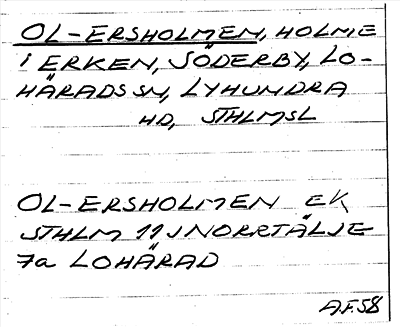 OL-ERSHOLMEN, HOLME
I ERKEN, SÖDERBY, LO-
HÄRADS SN, LYHUNDRA
HD, STHLMSL
OL-ERSHOLMEN EK
STHLM 11 J NORRTÄLJE
7a LOHÄRAD
A.F. 58